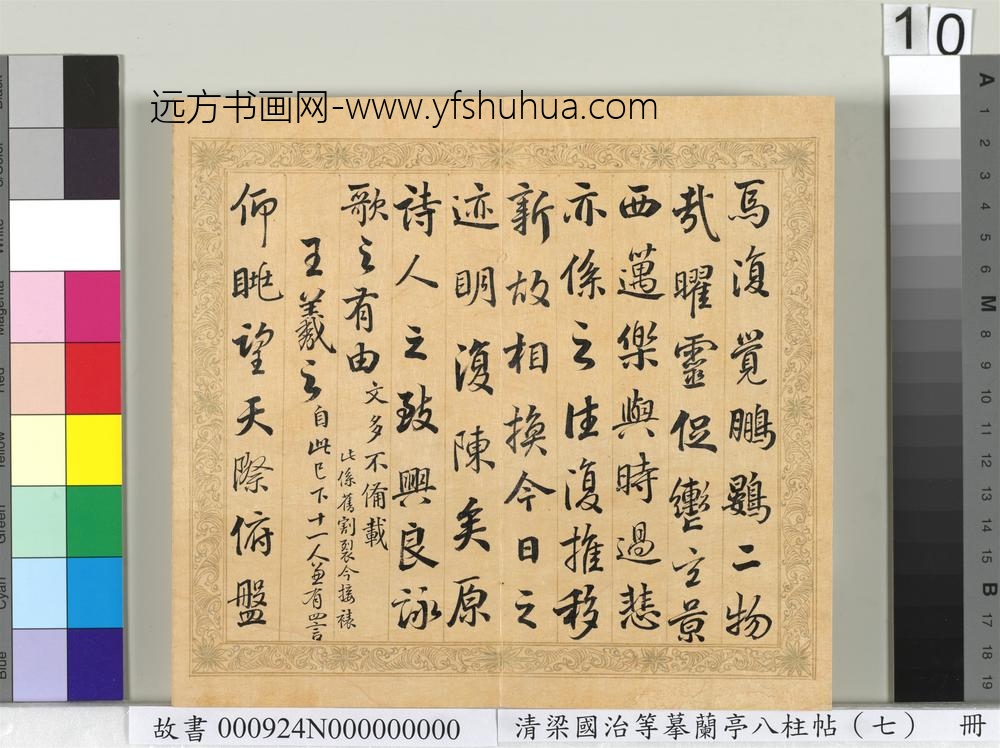 10
远方书画网-www.yfshuhua.com
焉復覺鵬鷃二物
哉曜靈促轡玄景
西邁樂與時過悲
亦係之往復推移
新故相換今日之
迹明復陳矣原
詩人之致興良詠
歌之有由文多不備載
此係舊割裂今接裱
王羲之自此已下十一人兼有四言
仰眺望天際俯盤
故書 000924N000000000
清梁國治等摹蘭亭八柱帖（七） 冊
Black
3/Color
White
Magenta
Red
Yellow
Green
Cyan
Blue
A
1
2
3
4
5
6
M
8
9
10
11
12
13
14
15
B
17
18
19